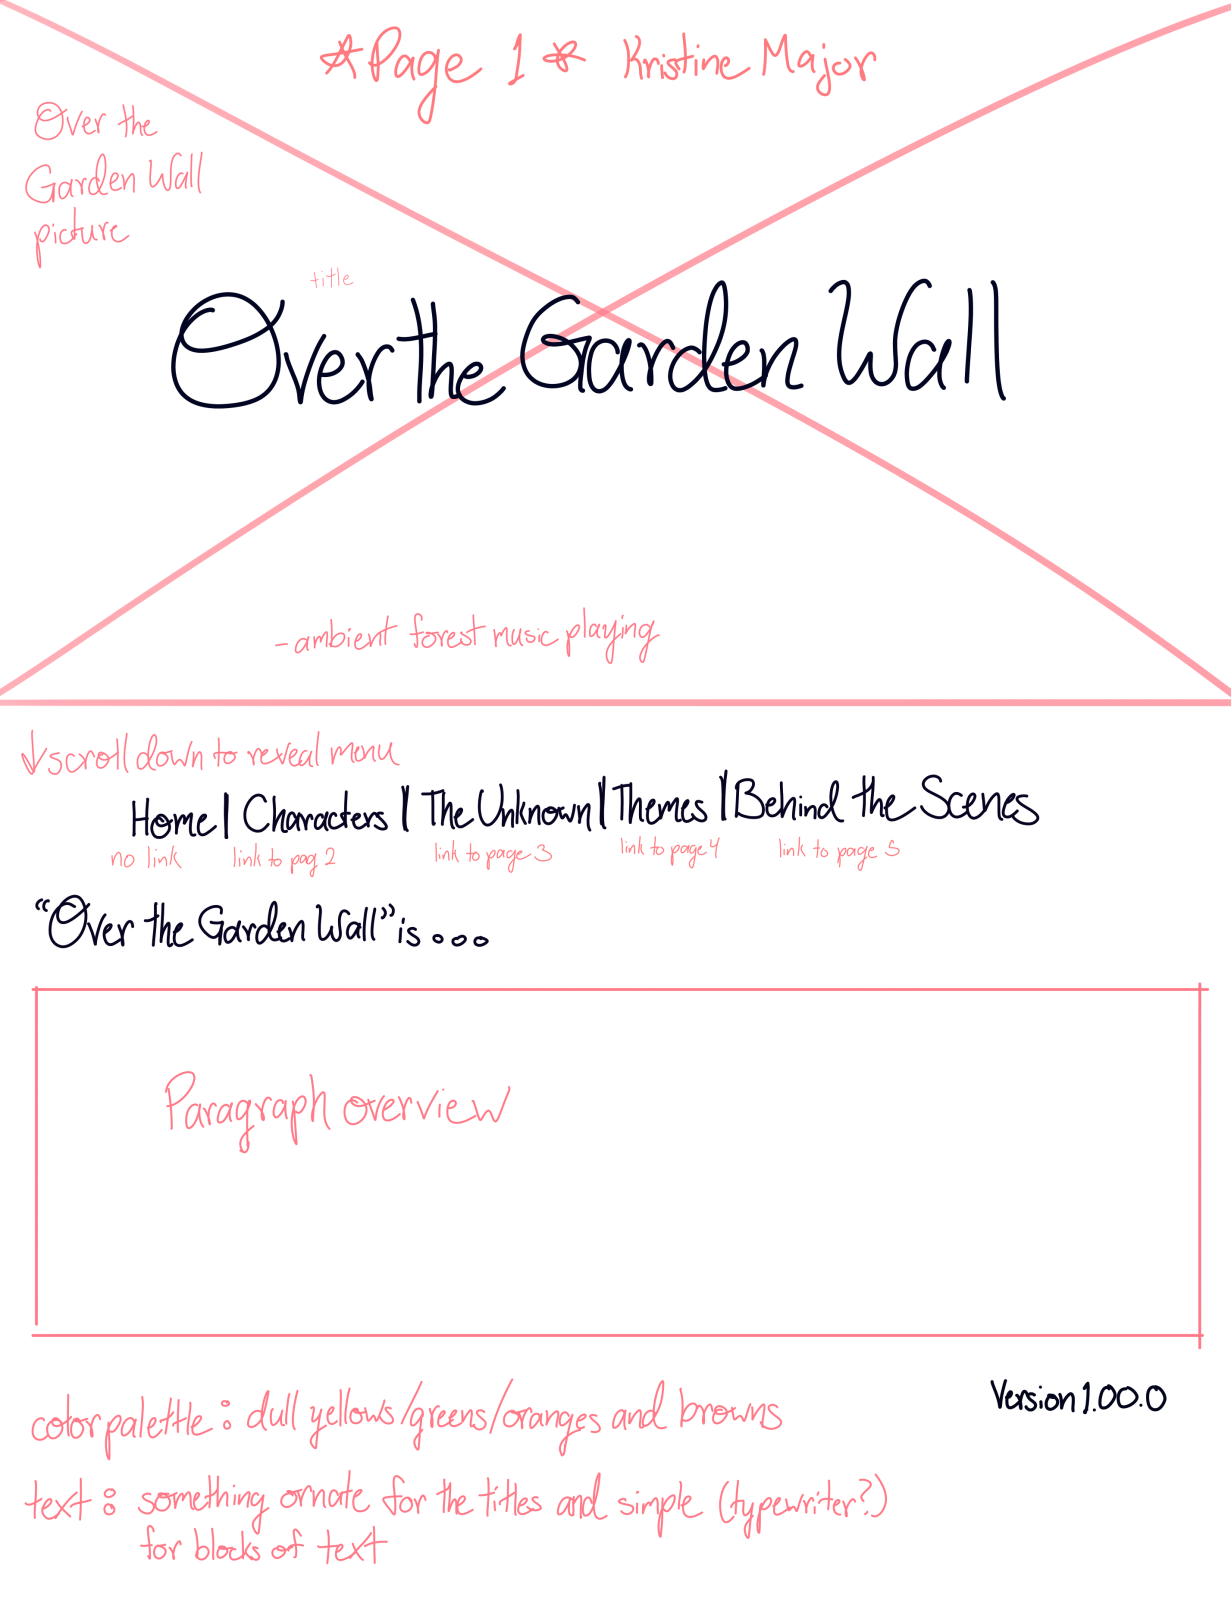 *Page 1* Kristine Major
Over the
Garden Wall
picture
title
Over the Garden Wall
- ambient forest music playing
↓ scroll down to reveal menu
Home | Characters | The Unknown | Themes | Behind the Scenes
no link link to pag 2 link to page 3 link to page 4 link to page 5
"Over the Garden Wall" is...
Paragraph overview
color palette: dull yellows/greens/oranges and browns
Version 1.00.0
text: something ornate for the titles and simple (typewriter?)
for blocks of text